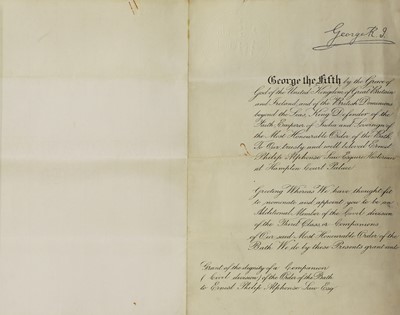 George R.I.
George the Fifth by the Grace of
God of the United Kingdom of Great Britain
and Ireland, and of the British Dominions
beyond the Seas, King, Defender of the
Faith, Emperor of India and Sovereign of
the Most Honourable Order of the Bath.
To Our trusty and well beloved Ernest
Philip Alphonse Law Esquire
at Hampton Court Palace
Greeting Whereas We have thought fit
to nominate and appoint you to be an
Additional Member of the Civil division
of the Third Class or Companions
of Our said Most Honourable Order of the
Bath We do by these Presents grant unto
Grant of the dignity of a Companion
(Civil division) of the Order of the Bath
to Ernest Philip Alphonse Law Esq